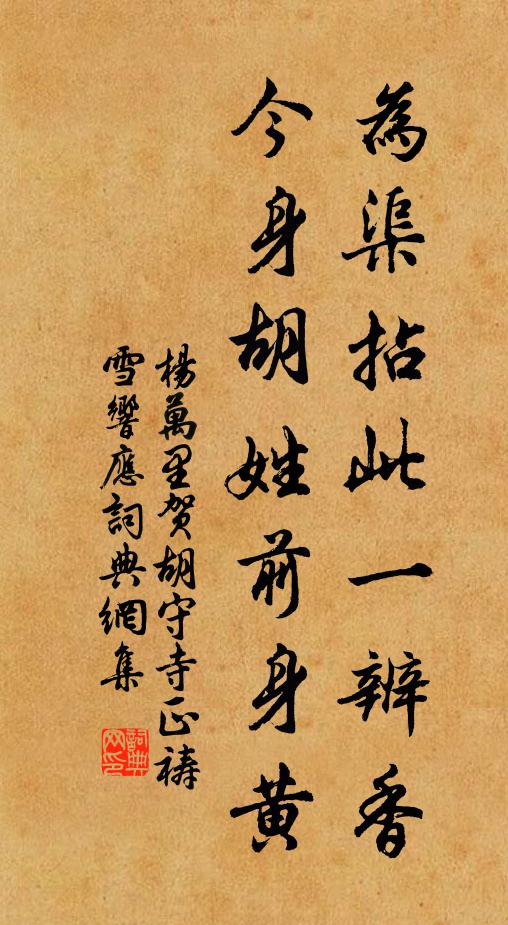 為渠拈此一辦香
今身胡姓前身黃
楊萬里賀胡守寺正禱
雪響應詞典網集
詞典
网印